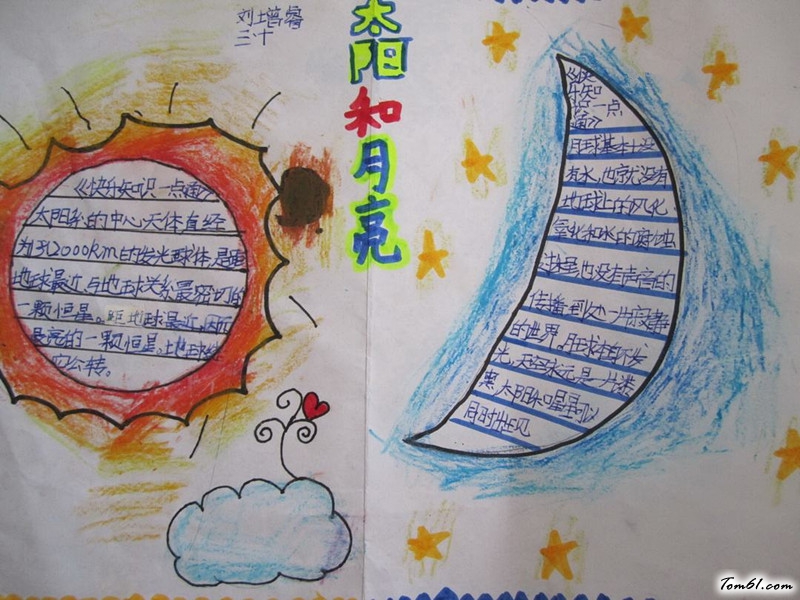 刘增睿
三·十
太阳和月亮
《快乐知识一点通》
太阳系的中心天体直经
为312000km的发光球体,是距
地球最近,与地球关系最密切的
一颗恒星。距地球最近,因而
最亮的一颗恒星,让地球绕
它公转。
《快
乐知
识一点
通》
月球基本上没
有水,也就没有
地球上的风化
氧化和水的腐蚀
过程也没有声音的
传播,到处一片寂静
的世界。月球本身不发
光,天空永远是一片漆
黑,太阳和星星可以
同时出现
Tom61.com